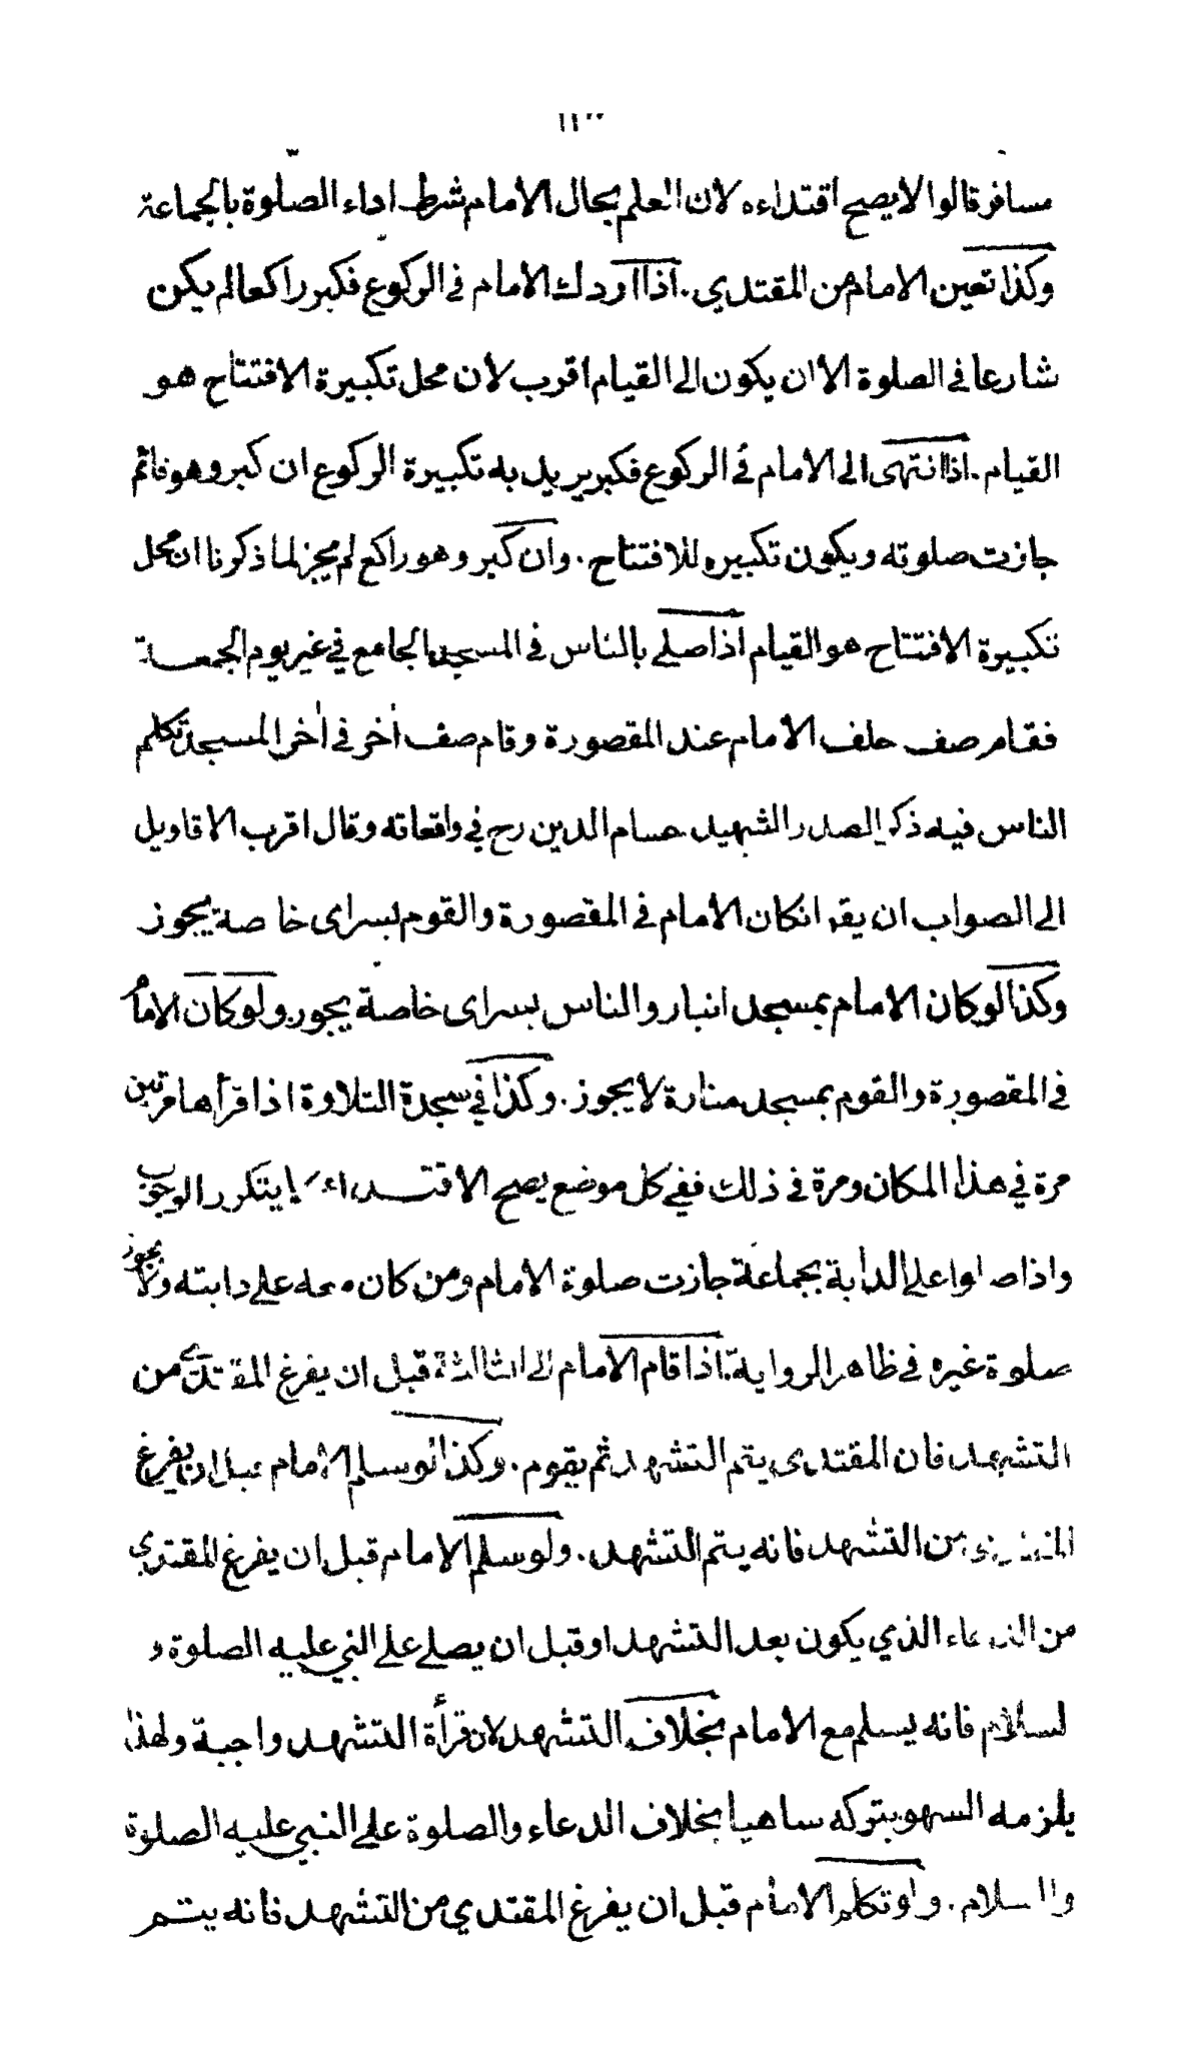 مسافر قالوا لا يصح اقتداءه لان العلم بحال الامام شرط اداء الصلوة بالجماعة
وكذا تعين الامام من المقتدي . اذا ادرك الامام في الركوع فكبر راكعا لم يكن
شارعا في الصلوة الا ان يكون الى القيام اقرب لان محل تكبيرة الافتتاح هو
القيام . اذا انتهى الى الامام في الركوع فكبر يريد به تكبيرة الركوع ان كبر وهو قائم
جازت صلوته ويكون تكبيره للافتتاح . وان كبر وهو راكع لم يجز لما ذكرنا ان محل
تكبيرة الافتتاح هو القيام اذا صلى بالناس في المسجد الجامع في غير يوم الجمعة
فقام صف خلف الامام عند المقصورة وقام صف أخر في أخر المسجد تكلم
الناس فيه ذكر الصدر الشهيد حسام الدين رح في واقعاته وقال اقرب الاقاويل
الى الصواب ان يقر انكان الامام في المقصورة والقوم بسراى خاصة يجوز
وكذا لو كان الامام بمسجد انبار والناس بسراى خاصة يجوز ولو كان الامام
في المقصورة والقوم بمسجد منارة لا يجوز . وكذا في سجدة التلاوة اذا قرأها مرتين
مرة في هذا المكان ومرة في ذلك ففي كل موضع يصح الاقتداء لا يتكرر الوجوب
واذا صلوا على الدابة بجماعة جازت صلوة الامام ومن كان معه على دابته ولا يجوز
صلوة غيره في ظاهر الرواية . اذا قام الامام الى الثالثة قبل ان يفرغ المقتدي من
التشهد فان المقتدى يتم التشهد ثم يقوم . وكذا لو سلم الامام قبل ان يفرغ
المقتدى من التشهد فانه يتم التشهد . ولو سلم الامام قبل ان يفرغ المقتدي
من الدعاء الذي يكون بعد التشهد او قبل ان يصلى على النبي عليه الصلوة و
لسلام فانه يسلم مع الامام بخلاف التشهد لان قرأة التشهد واجبة ولهذا
يلزمه السهو بتركه ساهيا بخلاف الدعاء والصلوة على النبي عليه الصلوة
والسلام . ولو تكلم الامام قبل ان يفرغ المقتدي من التشهد فانه يتم